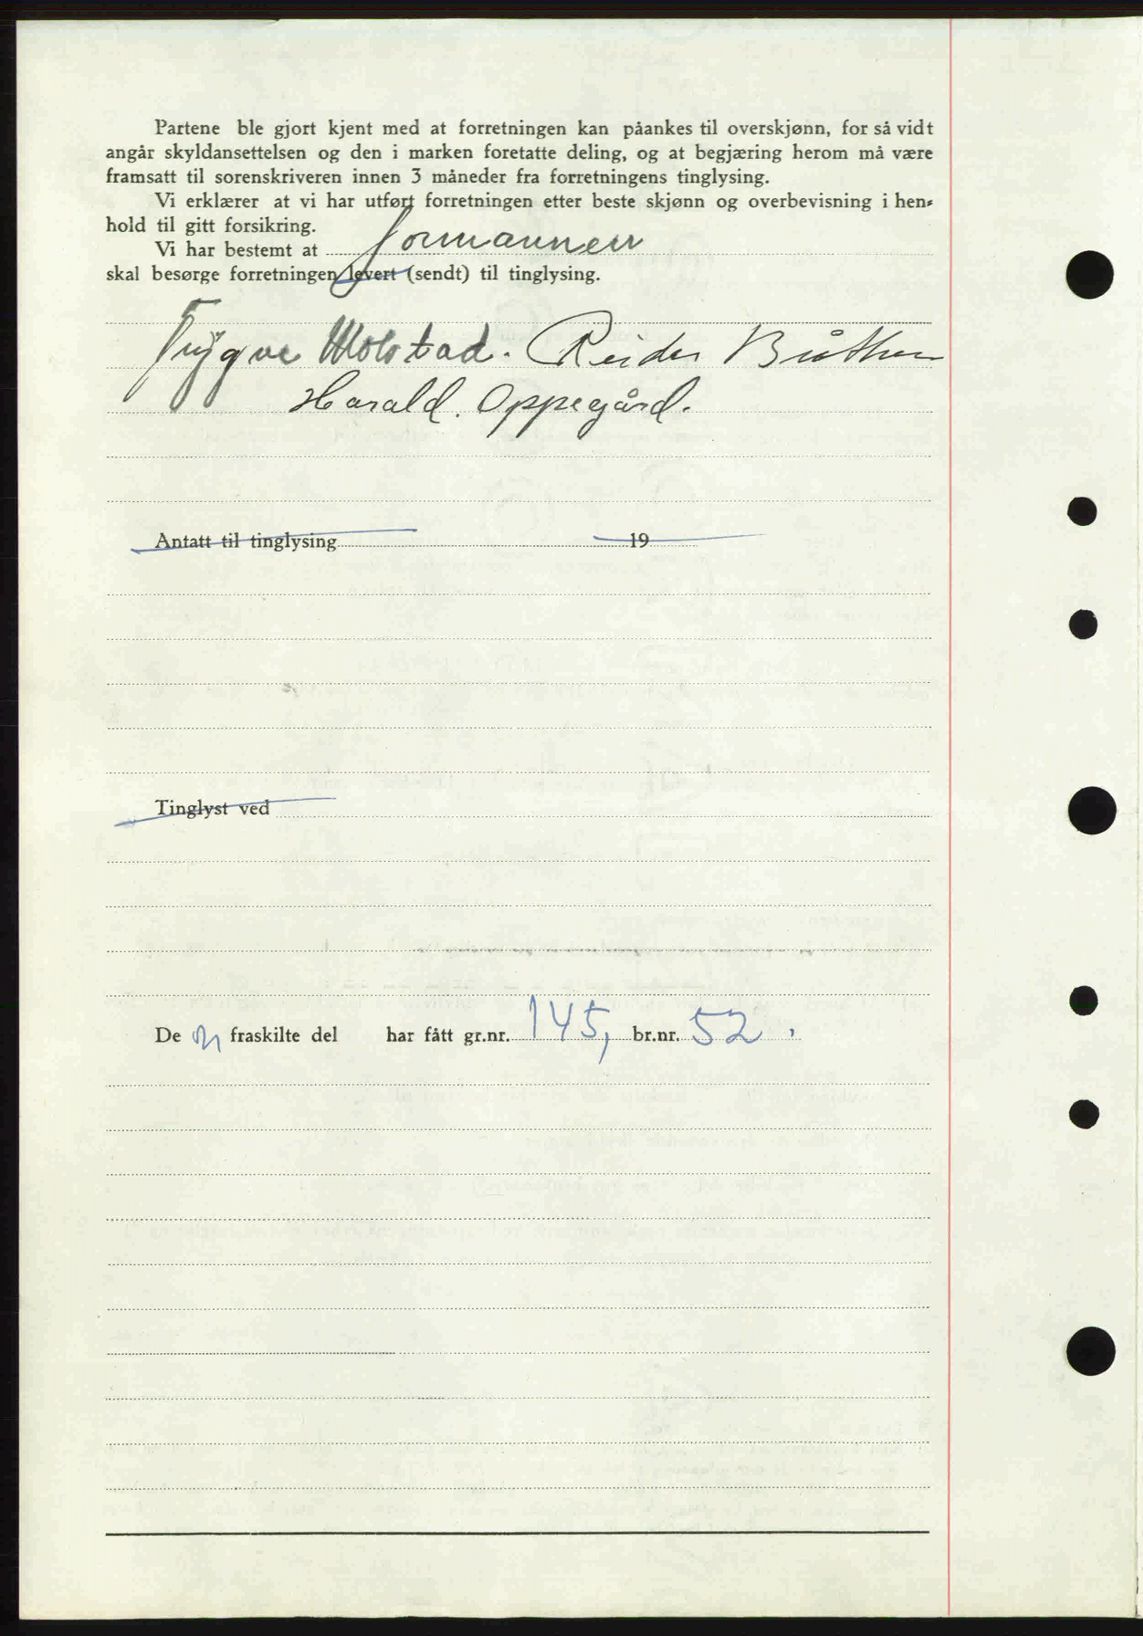 Partene ble gjort kjent med at forretningen kan påankes til overskjønn, for så vidt
angår skyldansettelsen og den i marken foretatte deling, og at begjæring herom må være
framsatt til sorenskriveren innen 3 måneder fra forretningens tinglysing.
Vi erklærer at vi har utført forretningen etter beste skjønn og overbevisning i hen-
hold til gitt forsikring.
Vi har bestemt at formannen
skal besørge forretningen levert (sendt) til tinglysing.
Trygve Molstad. Reidar Bråthen
Harald. Oppegård.
Antatt til tinglysing 19
Tinglyst ved
De n fraskilte del har fått gr.nr. 145, br.nr. 52.